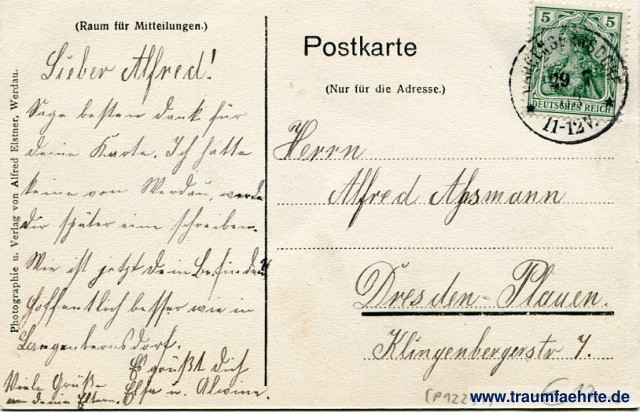 (Raum für Mitteilungen.)
Lieber Alfred!
Sage besten Dank für
deine Karte. Ich hatte
keine von Werdau, werde
dir später eine schreiben.
Wie ist jetzt dein Befinden?
Hoffentlich besser wie in
Langenbernsdorf.
Es grüßt dich
Elsa u. Alwine.
Viele Grüße
an deine Eltern.
Photographie u. Verlag von Alfred Elstner, Werdau.
Postkarte
(Nur für die Adresse.)
5 5
DEUTSCHES REICH
LANGENBERNSDORF
29
11-12V.
Herrn
Alfred
Dresden-Plauen.
Klingenbergerstr. 7.
www.traumfaehrte.de